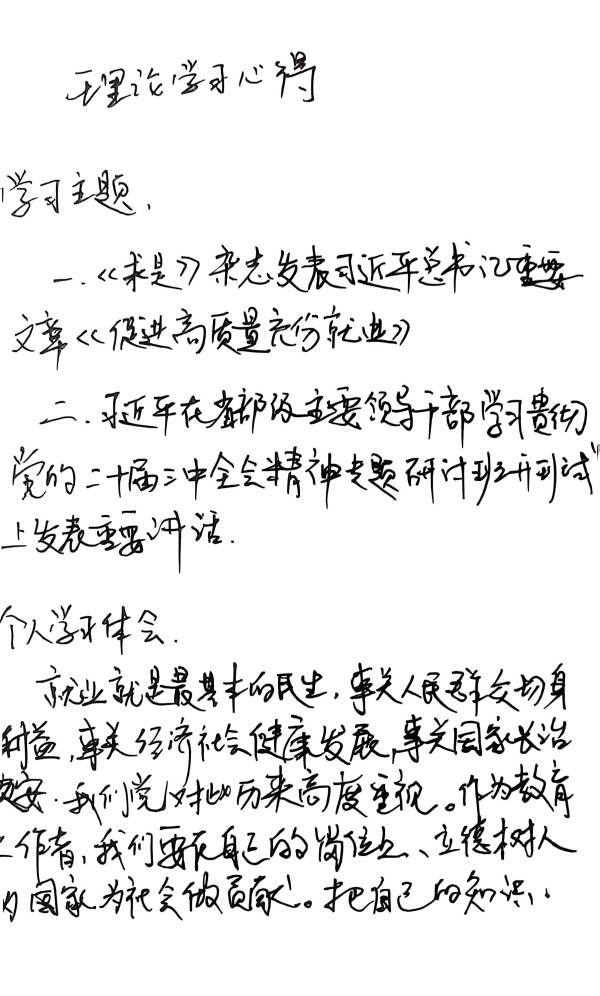 理论学习心得
学习主题.
一.《求是》杂志发表习近平总书记重要
文章《促进高质量充份就业》
二.习近平在省部级主要领导干部学习贯彻
党的二十届三中全会精神专题研讨班开班式
上发表重要讲话.
个人学习体会.
就业就是最基本的民生,事关人民群众切身
利益,事关经济社会健康发展,事关国家长治
久安.我们党对此历来高度重视。作为教育
工作者,我们要在自己的岗位上、立德树人
为国家为社会做贡献。把自己的知识、